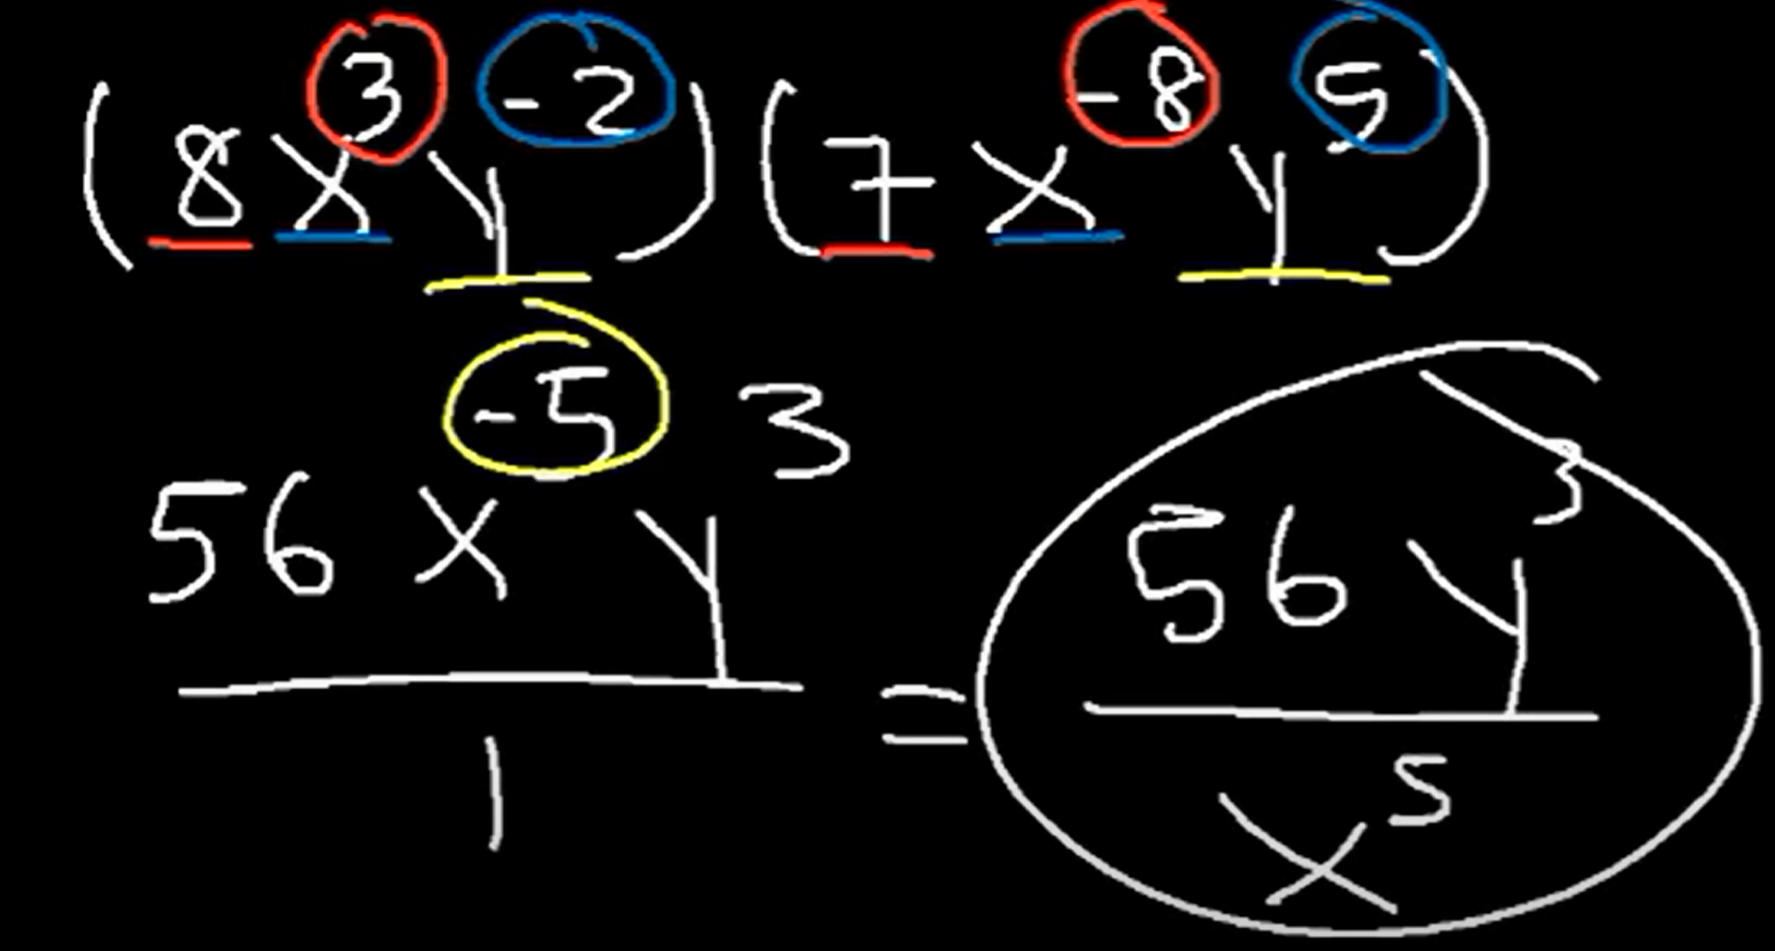 (8x³y⁻²)(7x⁻⁸y⁵)
56x⁻⁵y³/1 = 56y³/x⁵